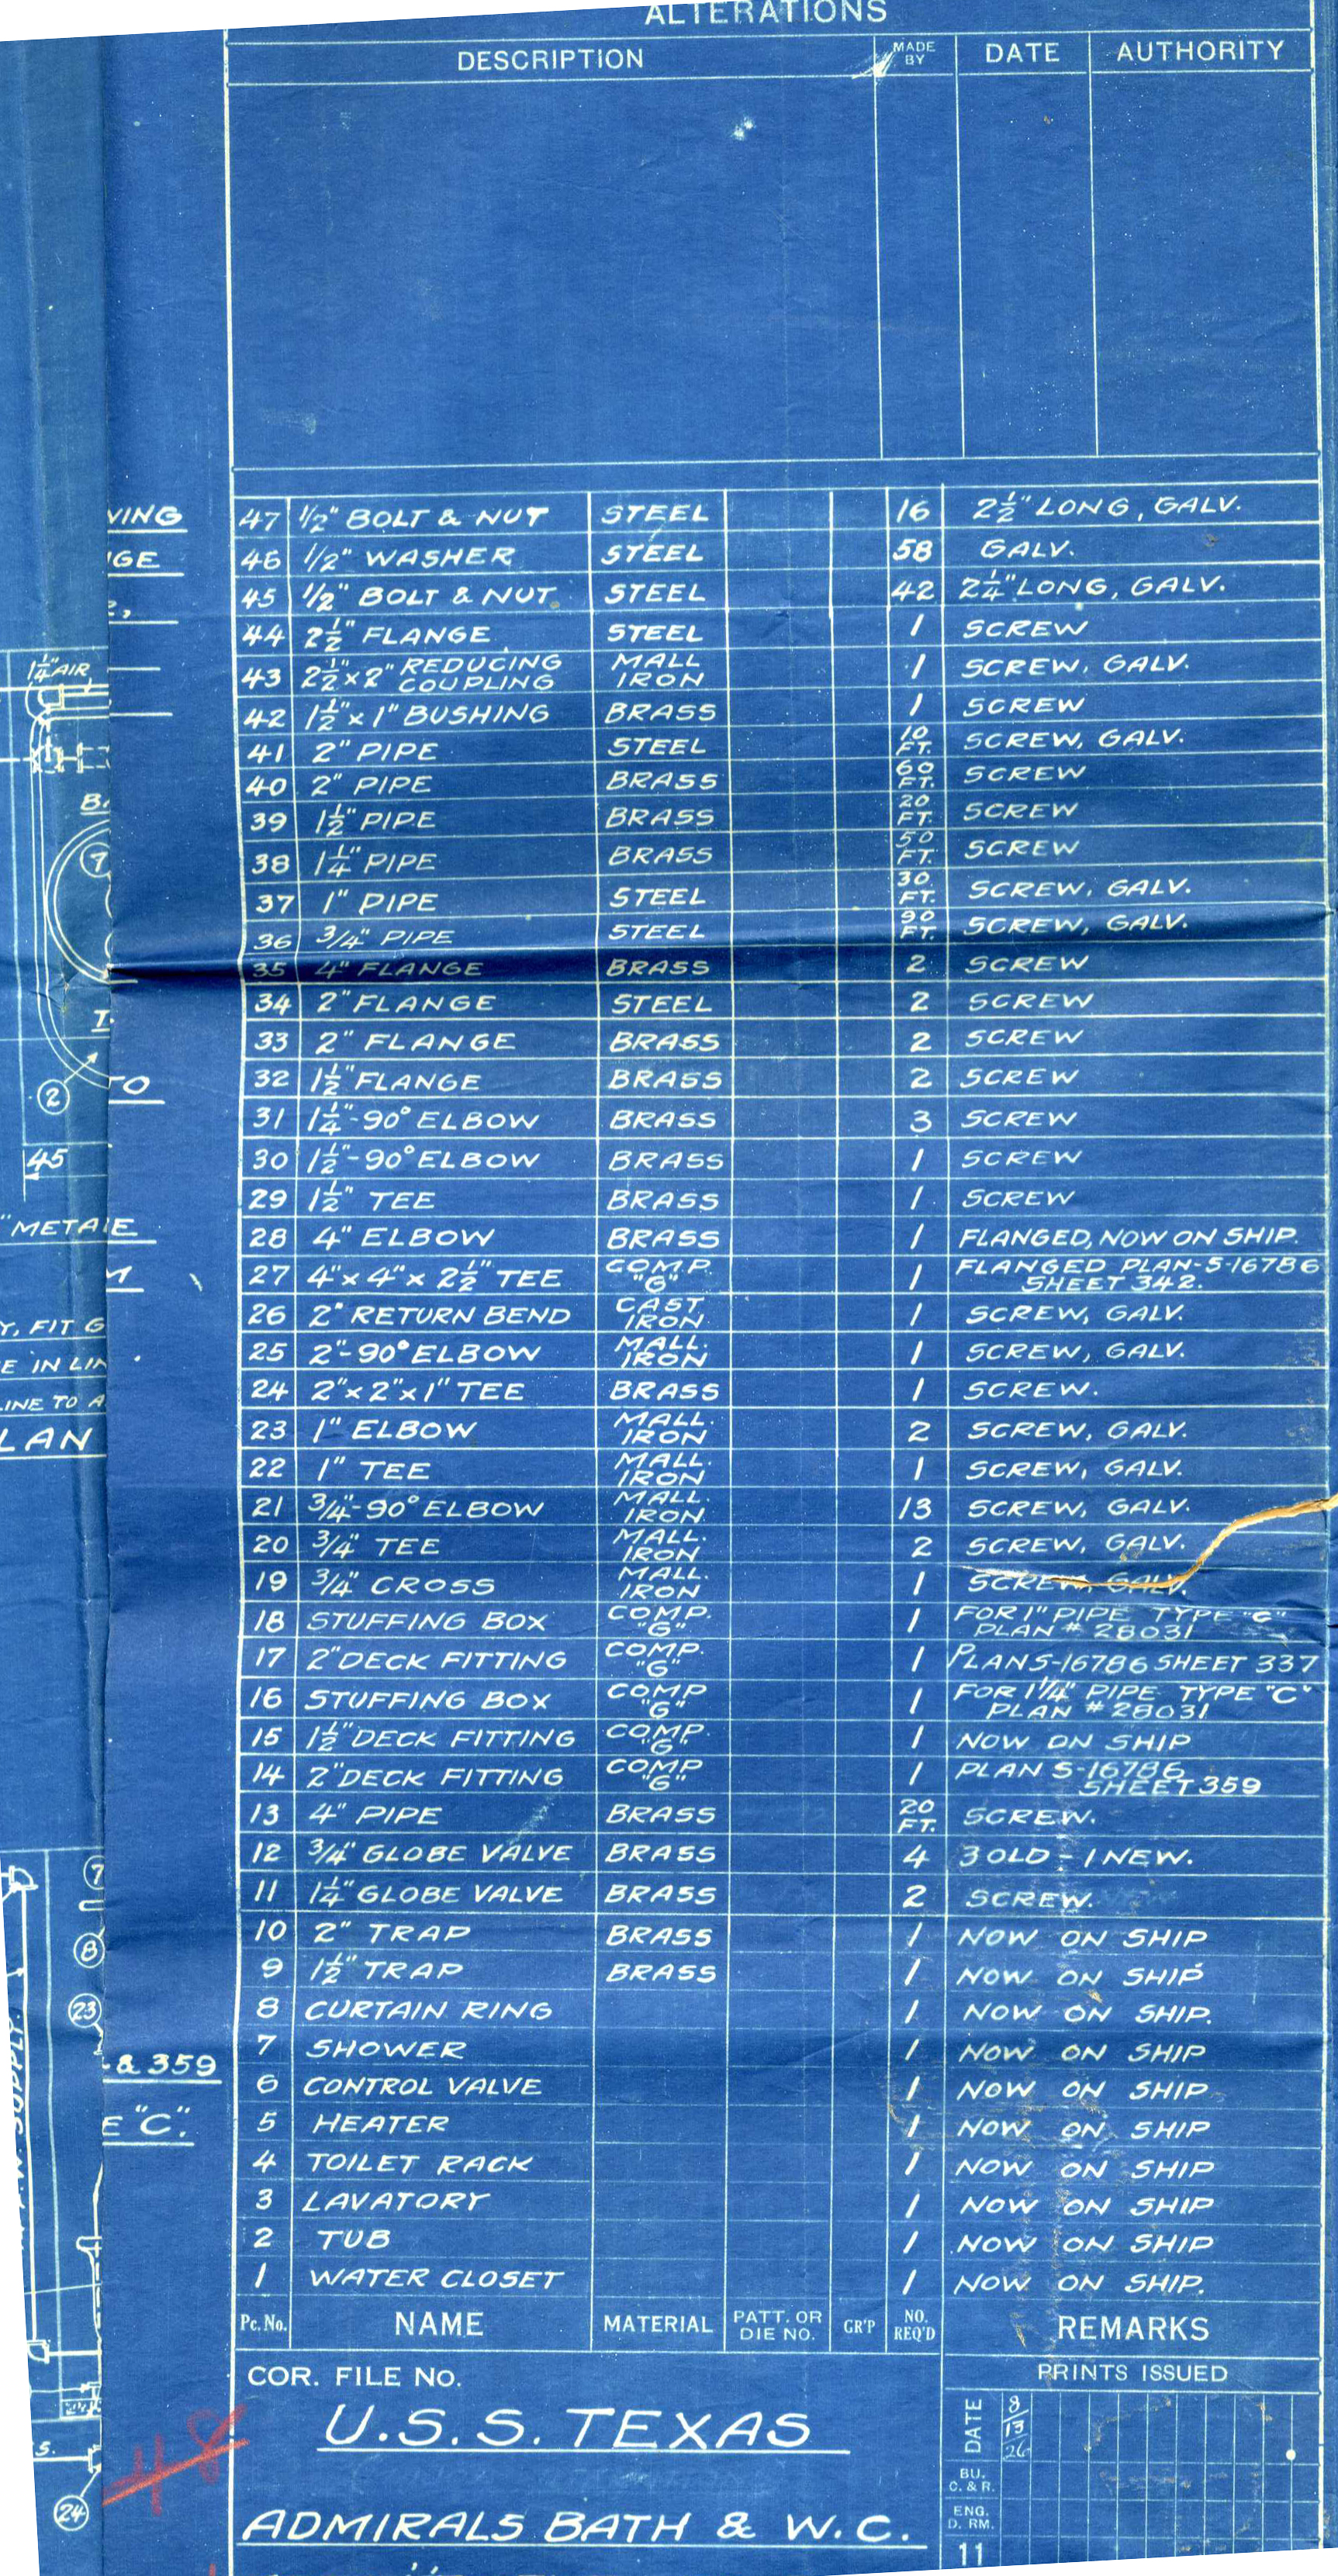 ALTERATIONS
DESCRIPTION MADE BY DATE AUTHORITY
47 1/2" BOLT & NUT STEEL 16 2 1/2" LONG, GALV.
46 1/2" WASHER STEEL 58 GALV.
45 1/2" BOLT & NUT STEEL 42 2 1/4" LONG, GALV.
44 2 1/2" FLANGE STEEL 1 SCREW
43 2 1/2" x 2" REDUCING COUPLING MALL IRON 1 SCREW, GALV.
42 1 1/2" x 1" BUSHING BRASS 1 SCREW
41 2" PIPE STEEL 10 FT. SCREW, GALV.
40 2" PIPE BRASS 60 FT. SCREW
39 1 1/2" PIPE BRASS 20 FT. SCREW
38 1 1/4" PIPE BRASS 50 FT. SCREW
37 1" PIPE STEEL 30 FT. SCREW, GALV.
36 3/4" PIPE STEEL 90 FT. SCREW, GALV.
35 4" FLANGE BRASS 2 SCREW
34 2" FLANGE STEEL 2 SCREW
33 2" FLANGE BRASS 2 SCREW
32 1 1/2" FLANGE BRASS 2 SCREW
31 1 1/4"-90° ELBOW BRASS 3 SCREW
30 1 1/2"-90° ELBOW BRASS 1 SCREW
29 1 1/2" TEE BRASS 1 SCREW
28 4" ELBOW BRASS 1 FLANGED, NOW ON SHIP.
27 4" x 4" x 2 1/2" TEE COMP. "G" 1 FLANGED PLAN-S-16786 SHEET 342.
26 2" RETURN BEND CAST. IRON 1 SCREW, GALV.
25 2"-90° ELBOW MALL. IRON 1 SCREW, GALV.
24 2" x 2" x 1" TEE BRASS 1 SCREW.
23 1" ELBOW MALL. IRON 2 SCREW, GALV.
22 1" TEE MALL. IRON 1 SCREW, GALV.
21 3/4"-90° ELBOW MALL. IRON 13 SCREW, GALV.
20 3/4" TEE MALL. IRON 2 SCREW, GALV.
19 3/4" CROSS MALL. IRON 1 SCREW, GALV.
18 STUFFING BOX COMP. "G" 1 FOR 1" PIPE TYPE "C" PLAN # 28031
17 2" DECK FITTING COMP. "G" 1 PLAN S-16786 SHEET 337
16 STUFFING BOX COMP "G" 1 FOR 1 1/4" PIPE TYPE "C" PLAN # 28031
15 1 1/2" DECK FITTING COMP. "G" 1 NOW ON SHIP
14 2" DECK FITTING COMP "G" 1 PLAN S-16786 SHEET 359
13 4" PIPE BRASS 20 FT. SCREW.
12 3/4" GLOBE VALVE BRASS 4 3 OLD - 1 NEW.
11 1 1/4" GLOBE VALVE BRASS 2 SCREW.
10 2" TRAP BRASS 1 NOW ON SHIP
9 1 1/2" TRAP BRASS 1 NOW ON SHIP
8 CURTAIN RING 1 NOW ON SHIP.
7 SHOWER 1 NOW ON SHIP
6 CONTROL VALVE 1 NOW ON SHIP
5 HEATER 1 NOW ON SHIP
4 TOILET RACK 1 NOW ON SHIP
3 LAVATORY 1 NOW ON SHIP
2 TUB 1 NOW ON SHIP
1 WATER CLOSET 1 NOW ON SHIP.
Pc. No. NAME MATERIAL PATT. OR DIE NO. GR'P NO. REQ'D REMARKS
COR. FILE NO.
U.S.S. TEXAS
ADMIRALS BATH & W.C.
PRINTS ISSUED
DATE 8/13/26
BU. C. & R.
ENG. D. RM.
11
VING
GE
1 1/4" AIR
7
2
TO
45
"METAL
E
M
Y, FIT G
E IN LIN
LINE TO A
LAN
7
8
23
& 359
E "C".
W. SUPPLY.
S.
24
#8